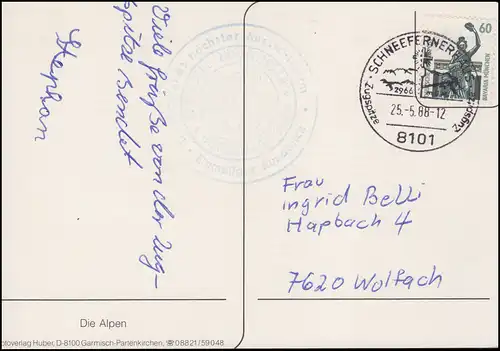 Viele Grüße von der Zug-
spitze sendet
Stephan
60
BAVARIA MÜNCHEN
SCHNEEFERNER
Zugspitze
2966
25.-5.88-12
Zugspitz
8101
Frau
Ingrid Belli
Hapbach 4
7620 Wolfach
Die Alpen
otoverlag Huber, D-8100 Garmisch-Partenkirchen, ☏08821/59048